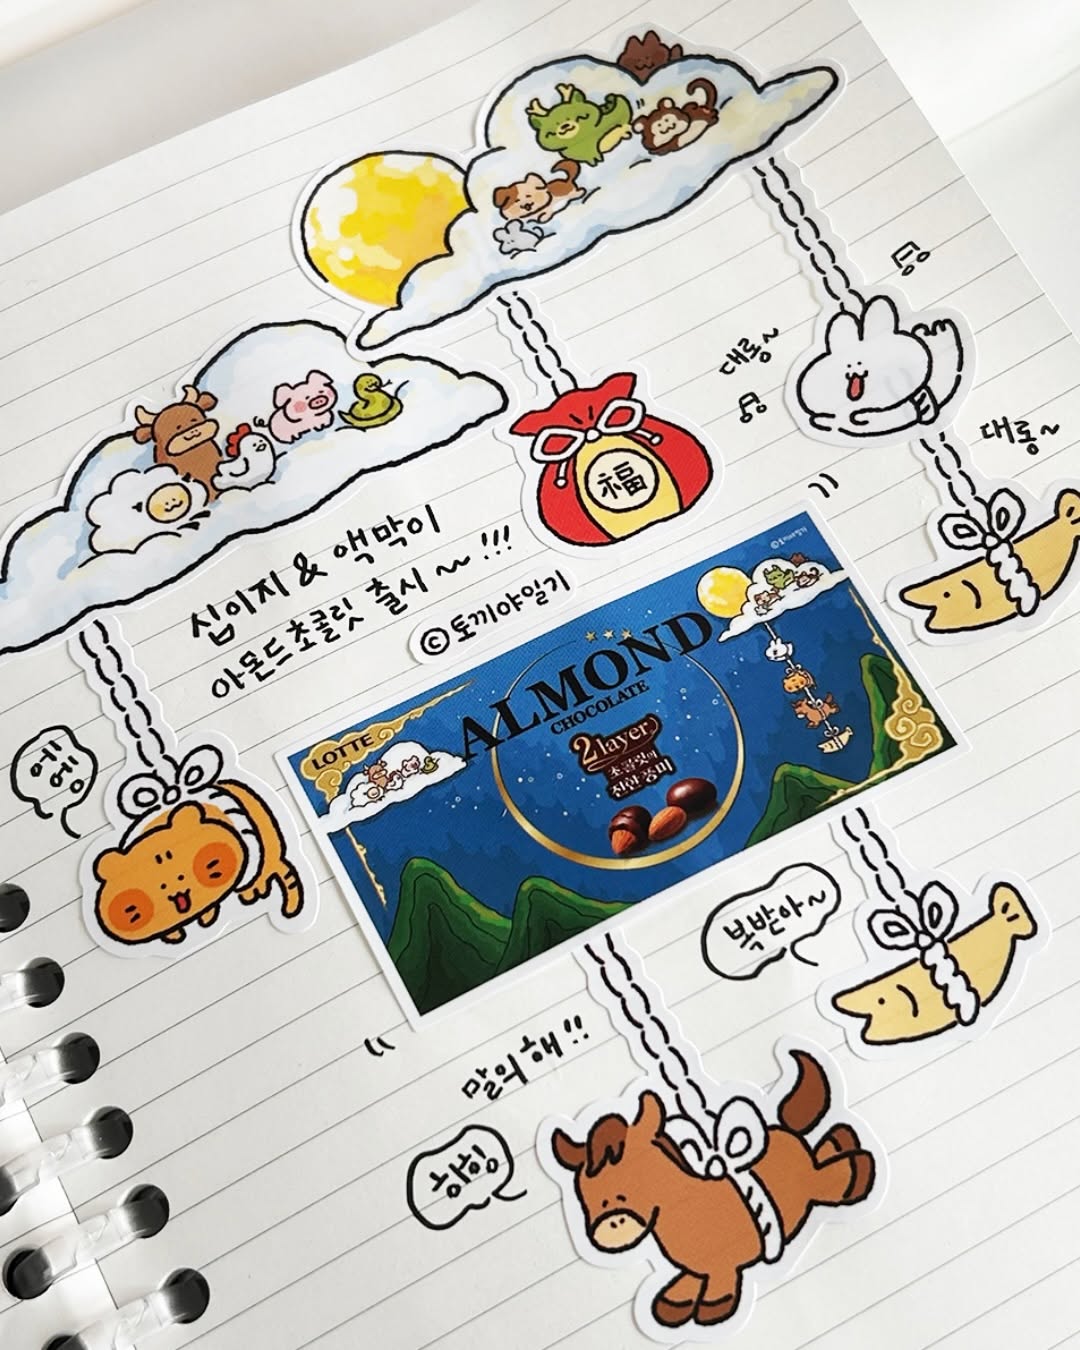 福
대롱~
대롱~
십이지 & 액막이
아몬드초콜릿 출시~~!!!
©토끼야일기
©토끼야일기
LOTTE
ALMOND
CHOCOLATE
2layer
초콜릿의
진한 풍미
에엥
복받아~
말의 해!!
히힝